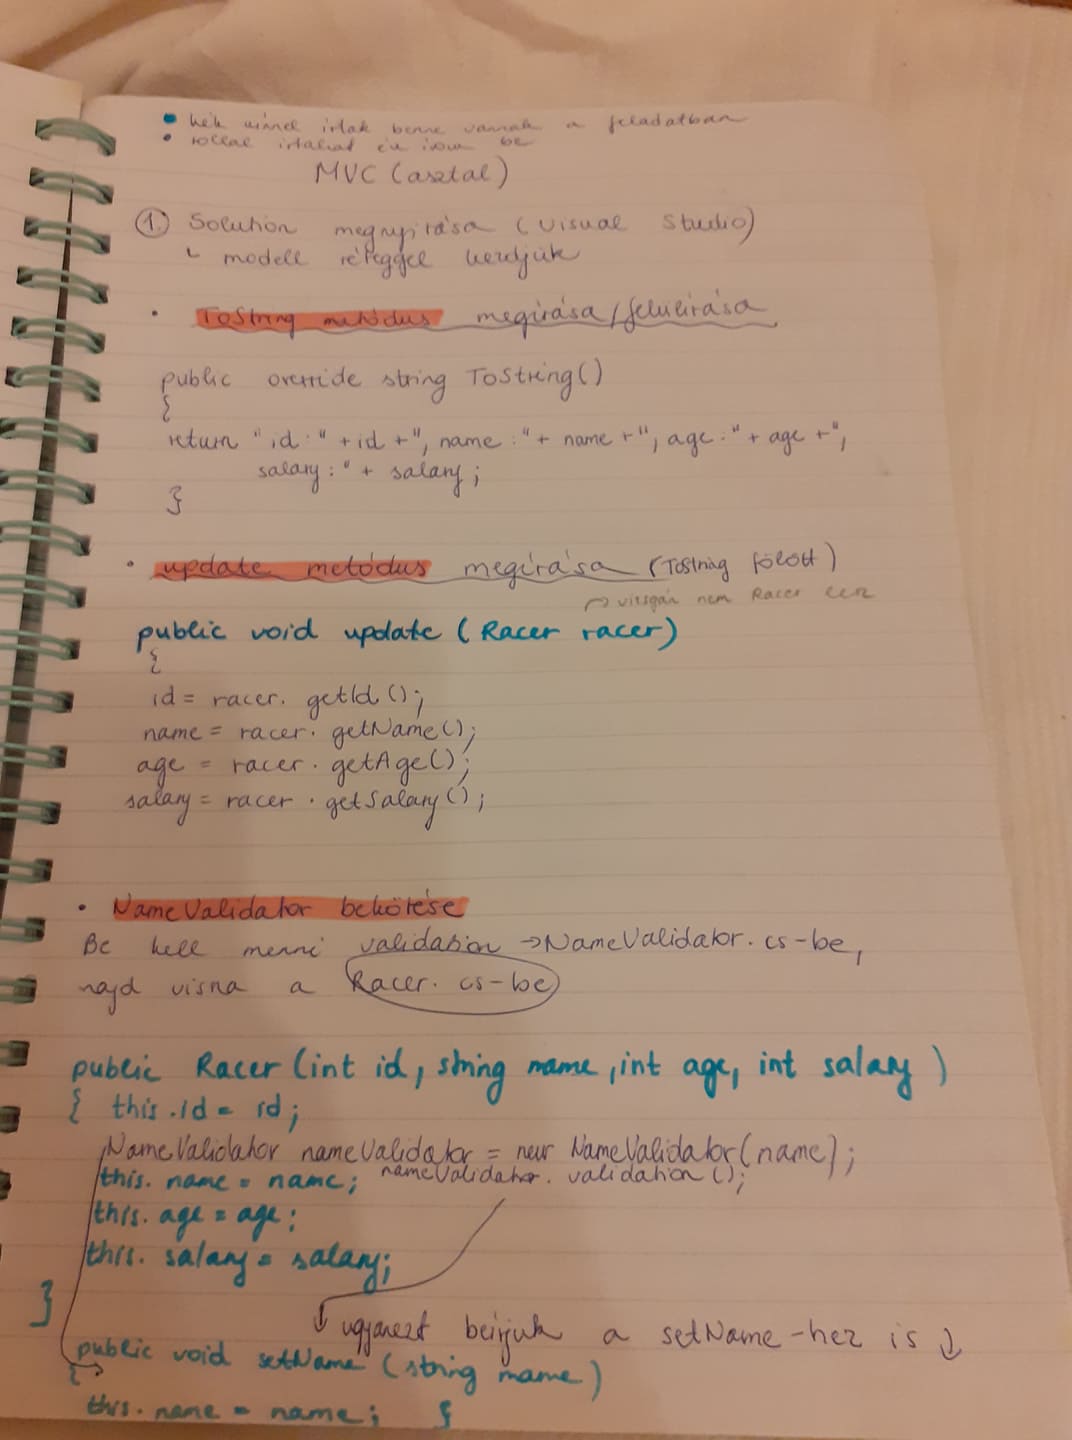 • kék színnel írtak benne vannak a feladatban
• tollal írtakat én írom be
MVC (asztal)
1. Solution megnyitása (Visual Studio)
↳ modell réteggel kezdjük
• ToString metódus megírása/felülírása
public override string ToString()
{
return "id:" + id +", name:"+ name +", age:"+ age +",
salary:" + salary;
}
• update metódus megírása (ToString fölött)
→ vizsgán nem Racer lesz
public void update (Racer racer)
{
id = racer. getId();
name = racer. getName();
age = racer. getAge();
salary = racer. getSalary();
• NameValidator bekötése
Be kell menni validation →NameValidator.cs-be,
majd vissza a Racer. cs-be
public Racer (int id, string name, int age, int salary)
{ this.id = id;
NameValidator nameValidator = new NameValidator(name);
this. name = name; nameValidator. validation();
this. age = age;
this. salary = salary;
}
↓ ugyanezt beírjuk a setName-hez is ↓
public void setName (string name)
{
this. name = name; }